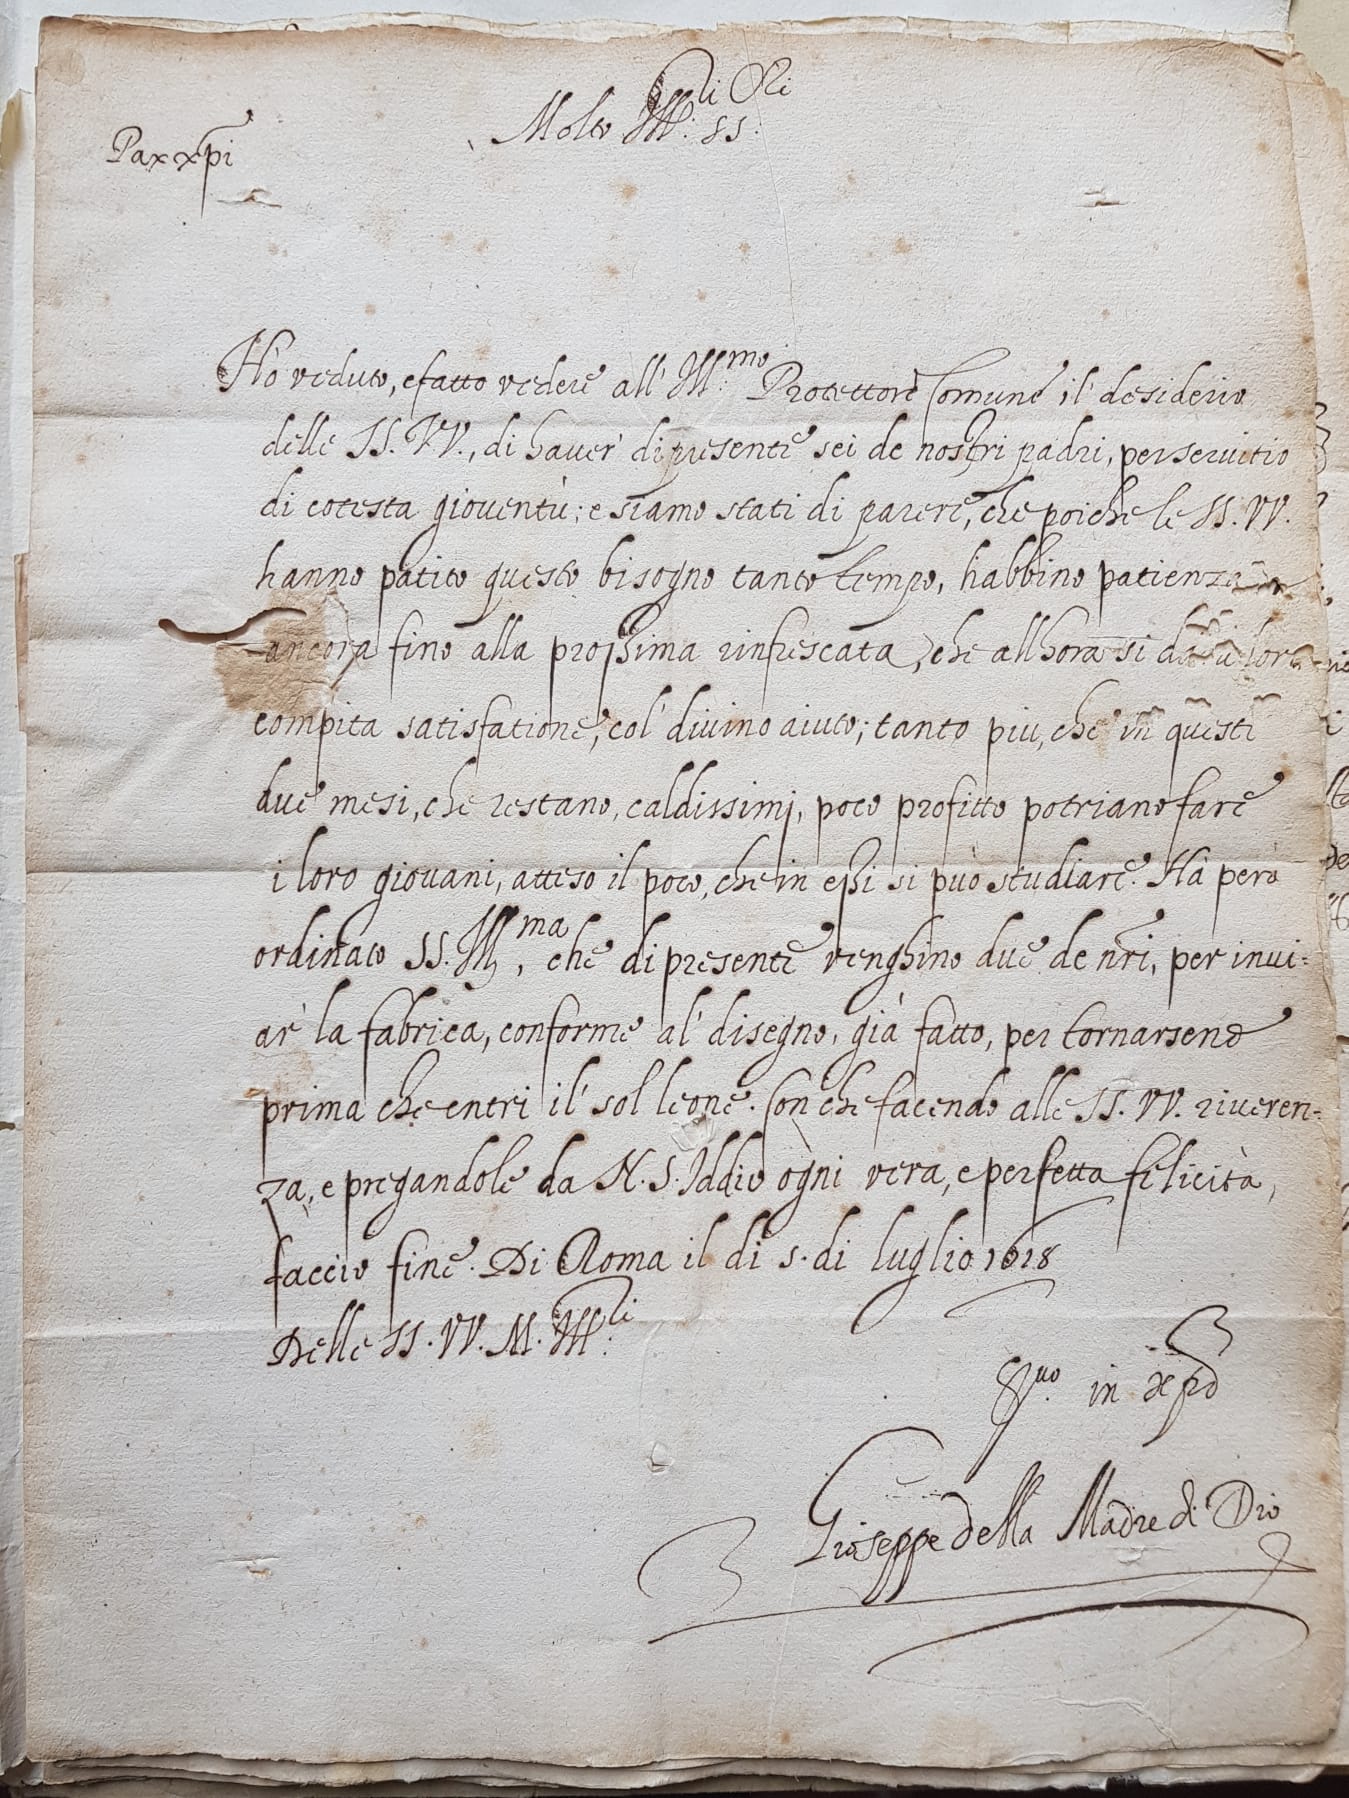 Molto Ill:li SS:ri
Pax xpi
Hò veduto, e fatto vedere all' Ill:mo Protettore Comune il desiderio
delle SS. VV., di haver' di presente sei de nostri padri, per servitio
di cotesta gioventù; e siamo stati di parere, che poiche le SS. VV.
hanno patito questo bisogno tanto tempo, habbino patienza
ancora fino alla prossima rinfrescata, che allhora si darà loro
compita satisfatione, col' divino aiuto; tanto piu, che in questi
due mesi, che restano, caldissimi, poco profitto potriano fare
i loro giovani, atteso il poco, che in essi si può studiare. Hà però
ordinato SS. Ill:ma, che di presente venghino due de nri, per invi=
ar' la fabrica, conforme al' disegno, già fatto, per tornarsene
prima che entri il' sol leone. Con che facendo alle SS. VV. riveren=
za, e pregandole da N. S. Iddio ogni vera, e perfetta felicità,
faccio fine. Di Roma il di 5. di luglio 1618
Delle SS. VV. M. Ill:li
S.uo in xpo
Gioseppe della Madre di Dio